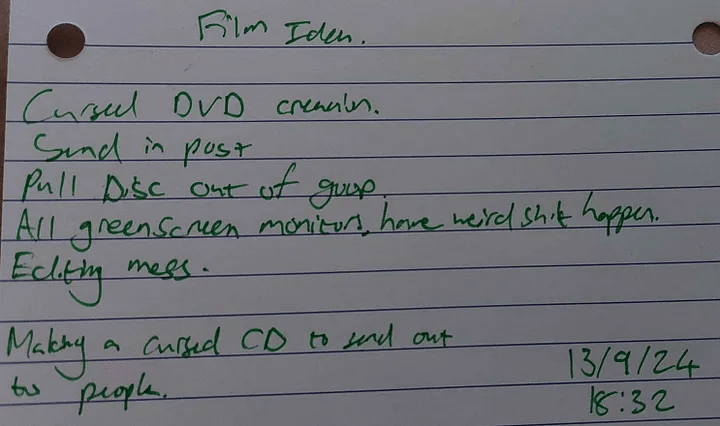 Film Idea.
Cursed DVD creation.
Send in post
Pull Disc out of goop.
All greenscreen monitors, have weird shit happen.
Editing mess.
Making a cursed CD to send out
to people.
13/9/24
18:32